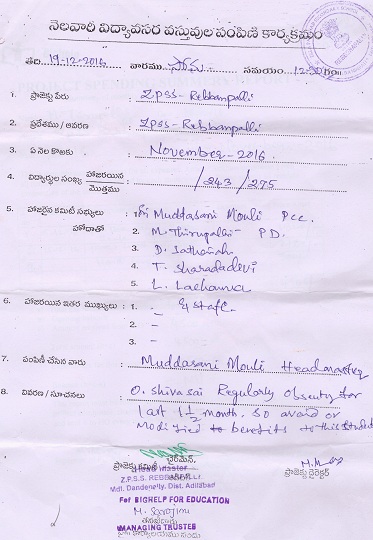 నెలవారీ విద్యావసర వస్తువుల పంపిణి కార్యక్రమం
తేది 19-12-2016 వారము సోమ సమయం 12:30 pm
1. ప్రాజెక్టు పేరు : ZPSS- Rebbanpalli
2. ప్రదేశము / ఆవరణ : ZPSS- Rebbanpalli
3. ఏ నెల కొఱకు : November-2016.
4. విద్యార్థుల సంఖ్య హాజరయిన / మొత్తము : /243/275
5. హాజరైన కమిటీ సభ్యులు : 1. Sri Muddasani Mouli PCC.
హోదాతో 2. M. Thirupathi- P.D.
3. D. Sathaiah
4. T. Sharadadevi
5. L. Lachanna
6. హాజరయిన ఇతర ముఖ్యులు : 1. - & staff.
2. -
3. -
7. పంపిణీ చేసిన వారు : Muddasani Mouli Headmaster
8. వివరణ / సూచనలు : O. Shivasai Regularly absenty for
last 1 1/2 month. so avoid or
Modified to benefits to this student
ప్రాజెక్టు కమిటీ ఛైర్మెన్.
ప్రాజెక్టు డైరెక్టర్
Head Master
Z.P.S.S. REBBANPALLI
Mdl. Dandepally, Dist. Adilabad
For BIGHELP FOR EDUCATION
M. Sarojini
MANAGING TRUSTEE